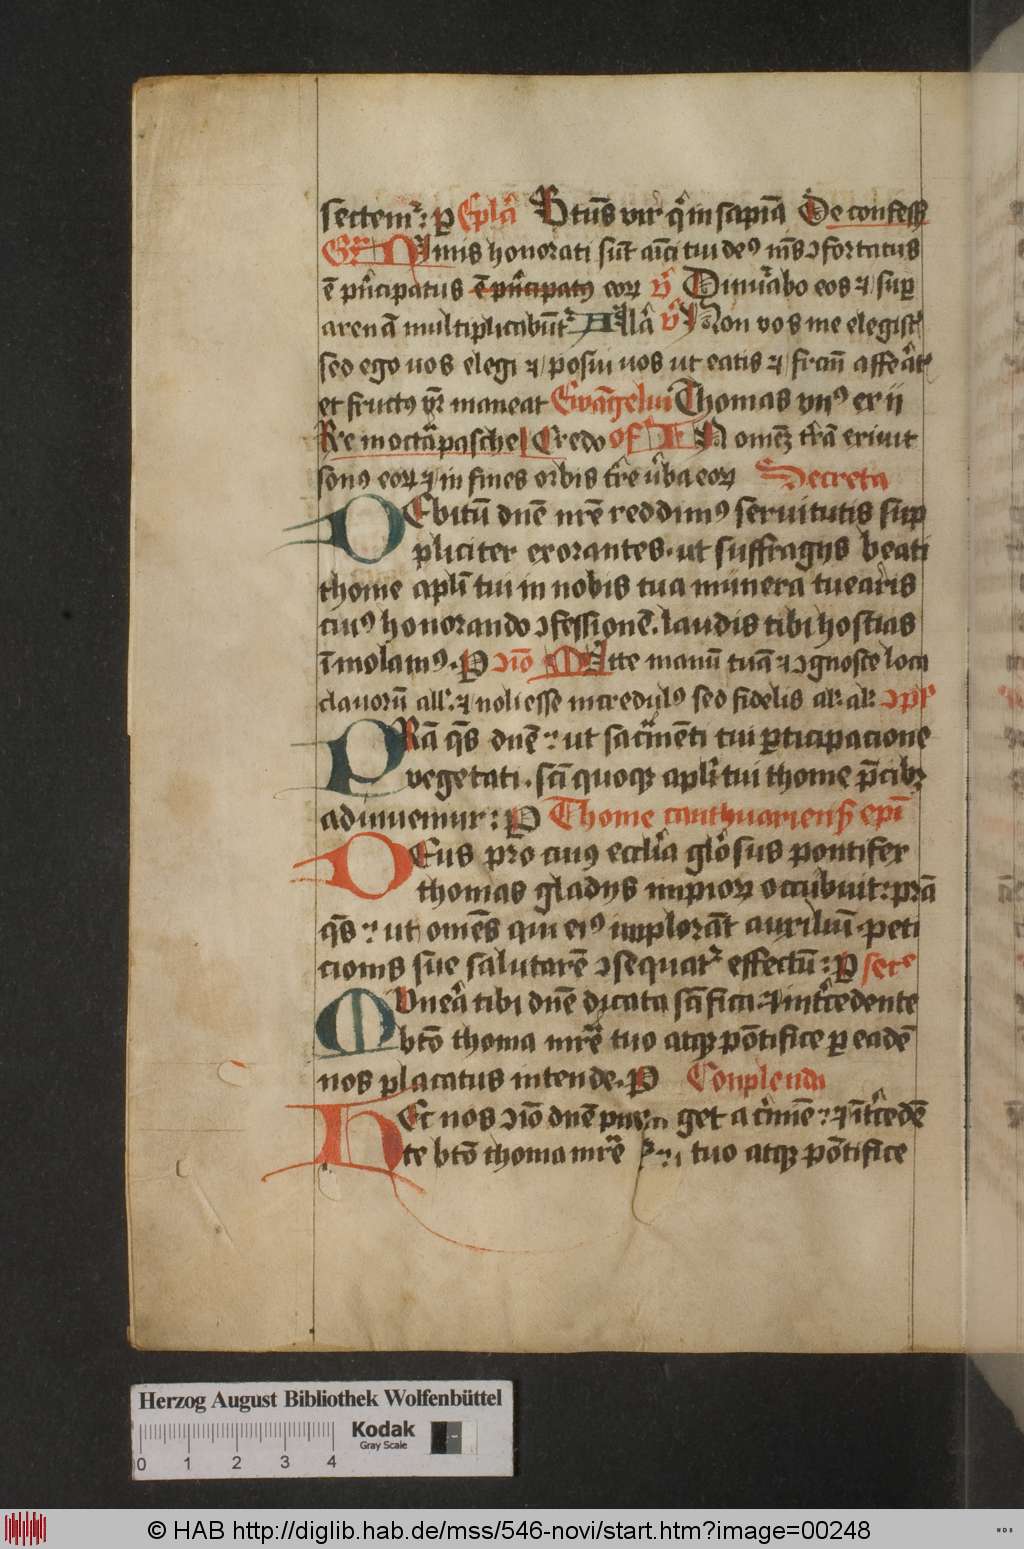 sectemr: p Eplā Btūs vir q̄ in sapiā De confess
Gr̄ Nimis honorati sūt aīci tui deꝰ mēs ↄfortatus
ē pn̄cipatus ē pn̄cipatꝰ eoꝝ v̄ Dinūabo eos ⁊ sup
arenā multiplicabūt Allā v̄ Non vos me elegistꝭ
sed ego uos elegi ⁊ posui uos ut eatis ⁊ fructū afferatꝭ
et fructꝰ vr̄ maneat Ewāgeliū Thomas vnꝰ ex ii
Re in octā pasche Credo of In omēꝫ trā exiuit
sonꝰ eoꝝ ⁊ in fines orbis tr̄e v̄ba eoꝝ Secreta
DEbitū dn̄e nr̄e reddimꝰ seruitutis sup
pliciter exorantes. ut suffragijs beati
thome apl̄i tui in nobis tua munera tuearis
cuiꝰ honorando ↄfessionē. laudis tibi hostias
īmolamꝰ. P ↄīo Mitte manū tuā ⁊ ↄgnosce loca
clauorū all̄. ⁊ noli esse incredulꝰ sed fidelis al. al. ↄpl̄
PRā qs̄ dn̄e :: ut sacrīmēti tui pticipacione
vegetati. sc̄i quoqꝫ apl̄i tui thome p̄cibꝫ
adiuuemur: P Thome canthuariens̄ epī
DEus pro cuiꝰ eccl̄ia glōsus pontifex
thomas gladijs impioꝝ occubuit: pr̄a
qs̄ :: ut omēs qui eiꝰ implorāt auxiliū. peti
cionis sue salutarē ↄsequatr effectū: P secꝭ
MVnerā tibi dn̄e dicata sc̄ifica: ⁊ int̄cedente
btō thoma mr̄e tuo atqꝫ pōtifice p eadē
nos placatus intende. P Conplenda
HEc nos ↄīo dn̄e purget a crīmīe :: ⁊ int̄cedē
te btō thoma mr̄e tuo atqꝫ pōtifice
Herzog August Bibliothek Wolfenbüttel
Kodak
Gray Scale
0 1 2 3 4
© HAB http://diglib.hab.de/mss/546-novi/start.htm?image=00248